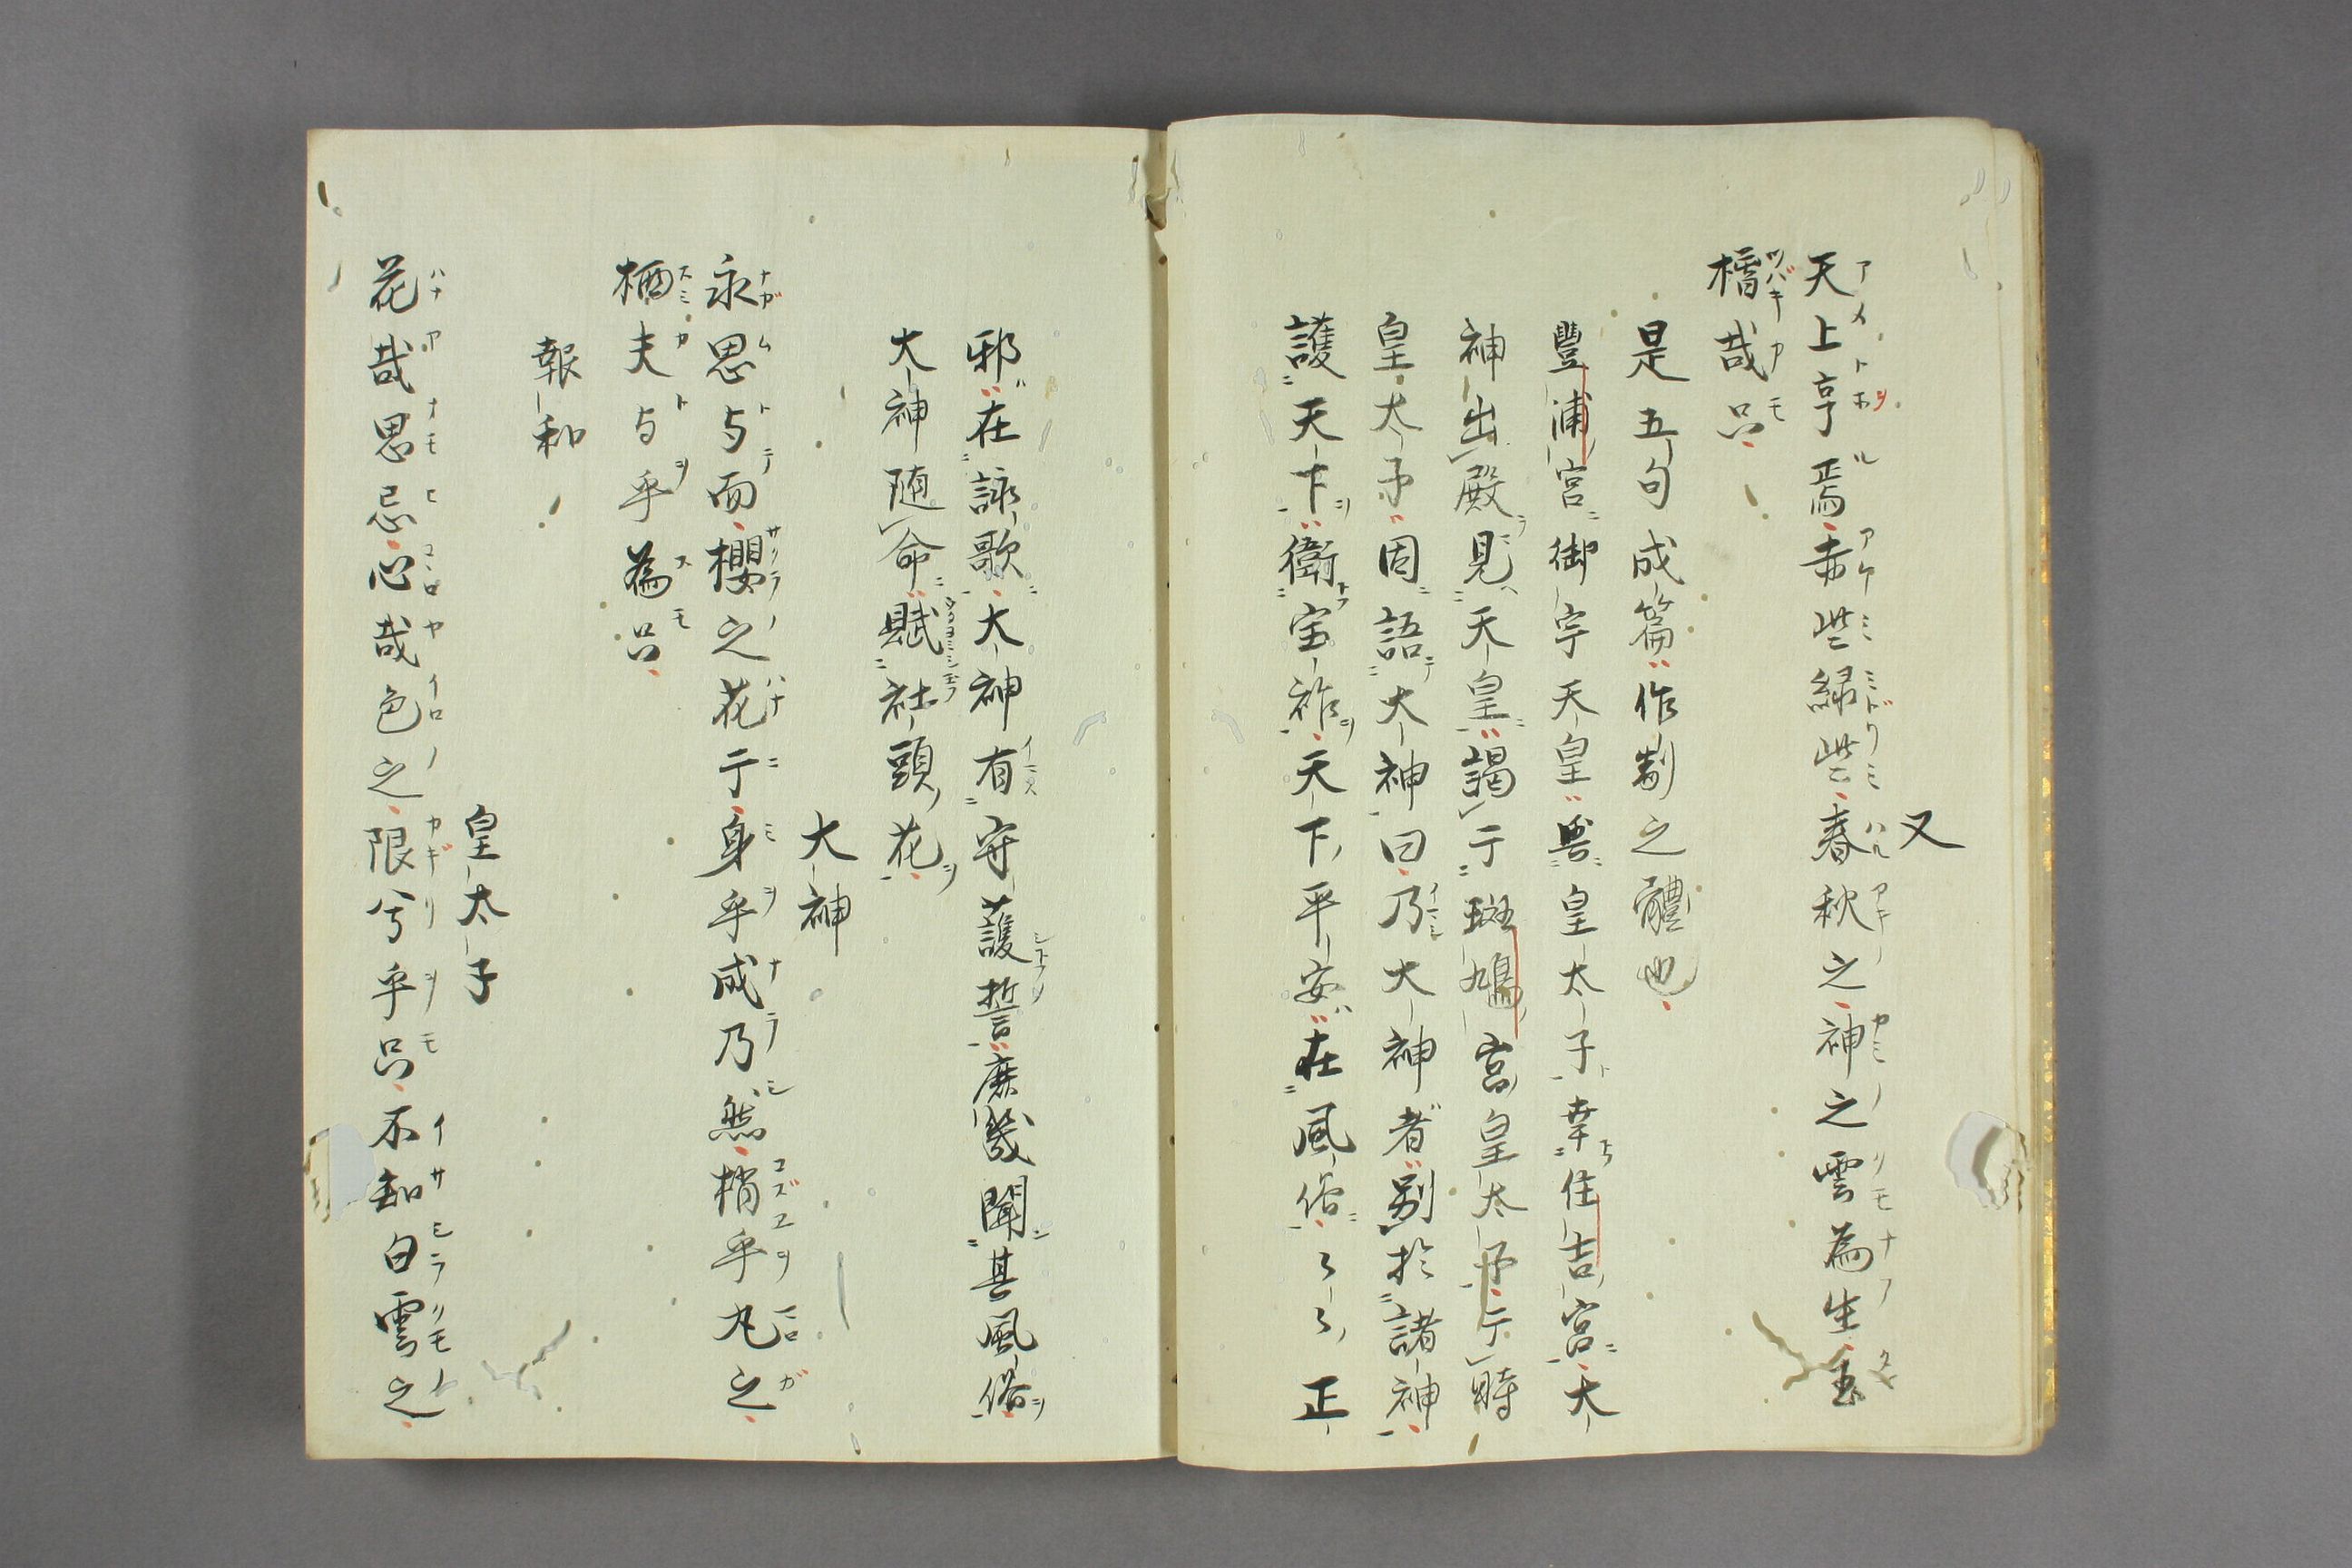 又
天上亨焉赤些緑些春秋之神之雲為生玉
椿哉只
是五句成篇作制之體也
豐浦宮御宇天皇與皇太子幸住吉宮大
神出殿見天皇謁于斑鳩宮皇太子于時
皇太子因語大神曰乃大神者別於諸神
護天下衛宝祚天下平安在風俗々々正
邪在詠歌大神有守護誓庶幾聞其風俗
大神随命賦社頭花
大神
永思与而櫻之花于身乎成乃然梢乎九之
栖夫与乎為只
報和
皇太子
花哉思忌心哉色之限兮乎只不知白雲之